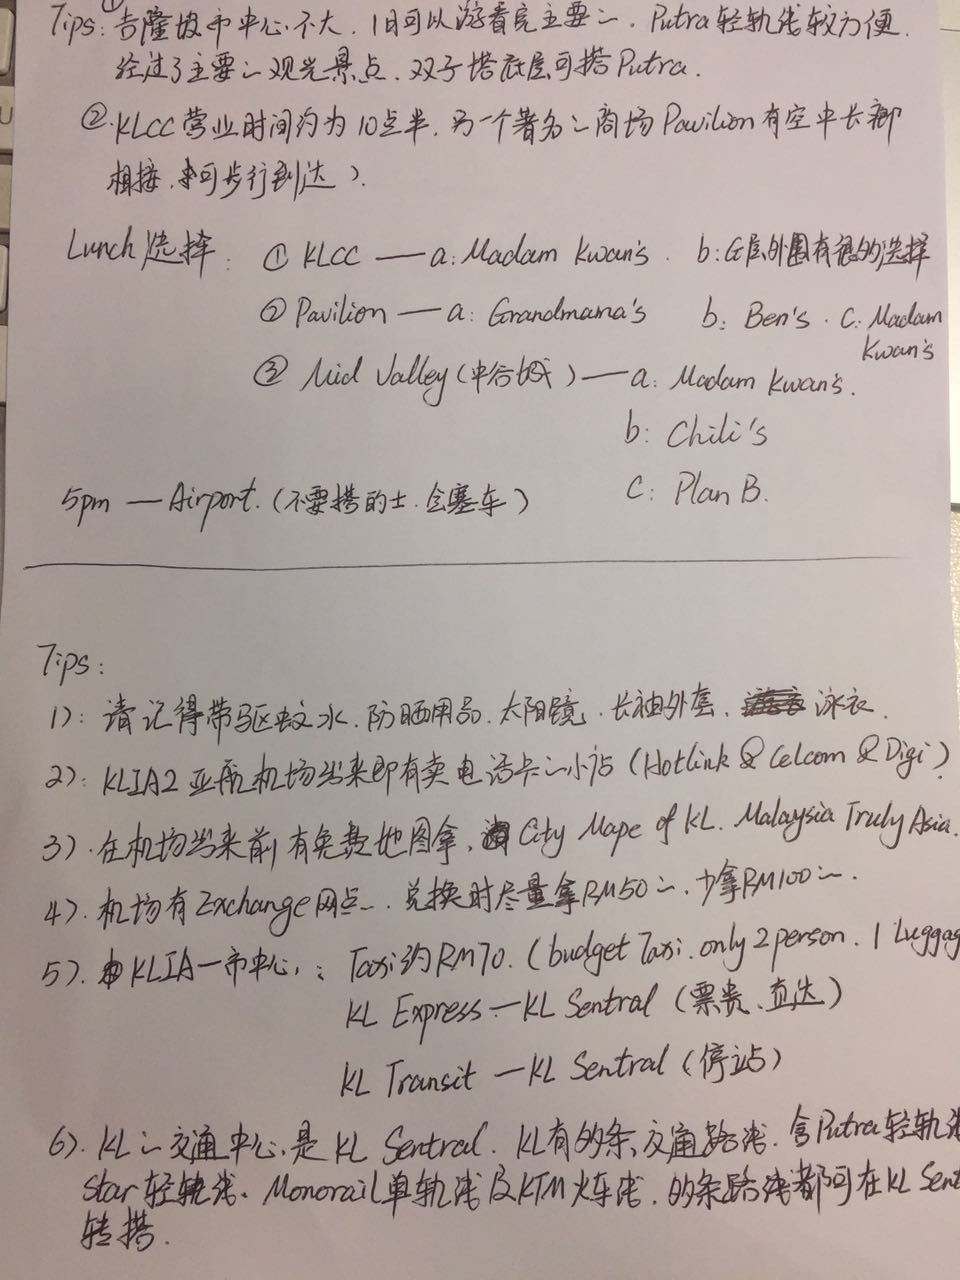 ①
Tips: 吉隆坡市中心不大, 1日可以游看完主要的. Putra轻轨线较方便.
经过了主要的观光景点. 双子塔底层可搭Putra.
②. KLCC营业时间约为10点半. 另一个著名的商场Pavilion有空中长廊
相接. 可步行到达).
Lunch选择: ① KLCC — a: Madam Kwan's. b: G层外围有很多选择
② Pavilion — a: Grandmama's b: Ben's. C: Madam
Kwan's
③ Mid Valley (中谷城) — a: Madam Kwan's.
b: Chili's
5pm — Airport. (不要搭的士. 会塞车) C: Plan B.
Tips:
1): 请记得带驱蚊水. 防晒用品. 太阳镜. 长袖外套. 泳衣.
2): KLIA2 亚航机场出来即有卖电话卡的小站 (Hotlink & Celcom & Digi)
3). 在机场出来前有免费地图拿, City Mape of KL. Malaysia Truly Asia.
4). 机场有Exchange网点. 兑换时尽量拿RM50的. 少拿RM100的.
5). KLIA—市中心: Taxi约RM70. (budget Taxi. only 2 person. 1 Luggag
KL Express — KL Sentral (票贵、直达)
KL Transit — KL Sentral (停站)
6). KL的交通中心是KL Sentral. KL有的条交通路线. 含Putra轻轨
Star轻轨线、Monorail单轨线及KTM火车线. 的条路线都可在KL Sent
转搭.